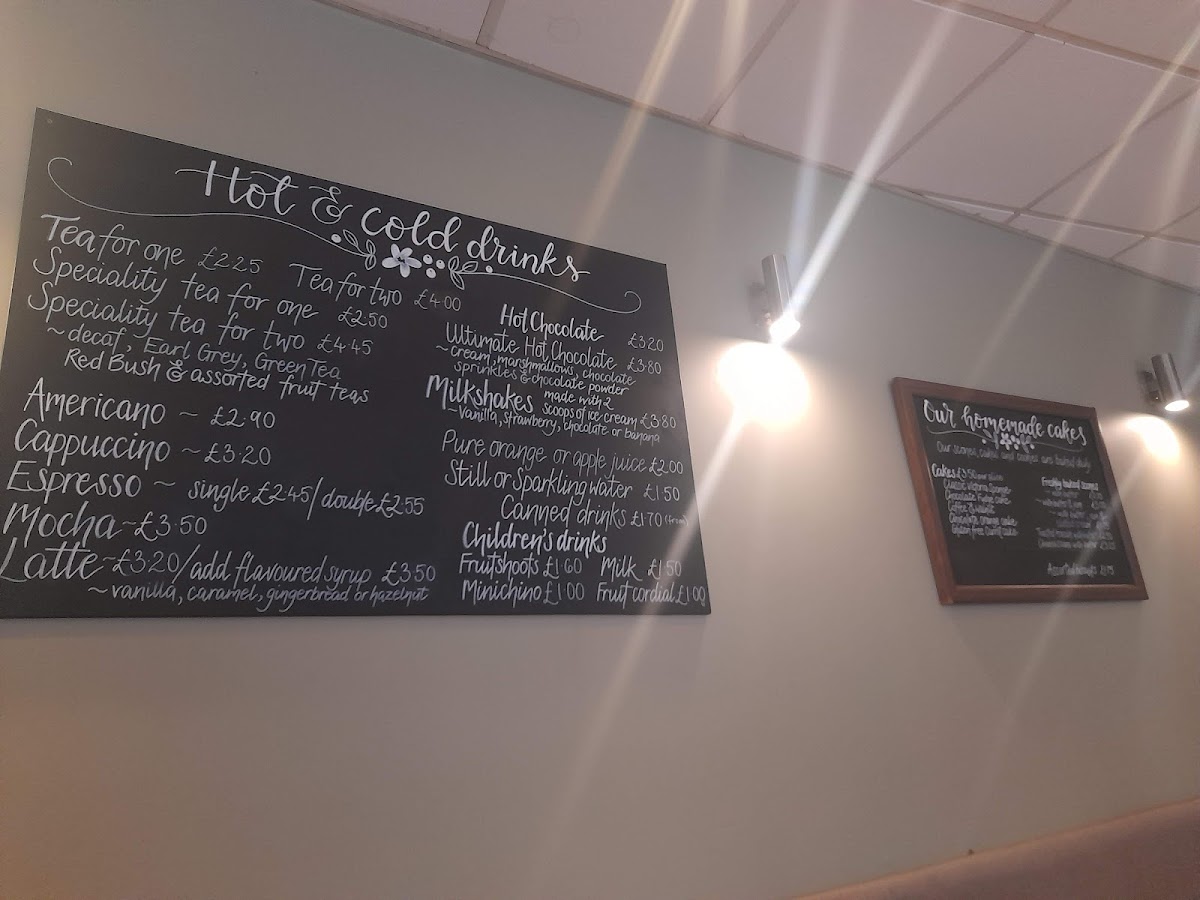 Hot & cold drinks
Tea for one £2.25
Tea for two £4.00
Speciality tea for one £2.50
Speciality tea for two £4.45
~decaf, Earl Grey, Green Tea
Red Bush & assorted fruit teas
Americano ~ £2.90
Cappuccino ~ £3.20
Espresso ~ single £2.45/double £2.55
Mocha ~ £3.50
Latte ~ £3.20/add flavoured syrup £3.50
~vanilla, caramel, gingerbread or hazelnut
Hot Chocolate £3.20
Ultimate Hot Chocolate £3.80
~cream, marshmallows, chocolate
sprinkles & chocolate powder
Milkshakes made with 2 scoops of ice cream £3.80
~Vanilla, strawberry, chocolate or banana
Pure orange or apple juice £2.00
Still or Sparkling water £1.50
Canned drinks £1.70 (from)
Children's drinks
Fruitshoots £1.60 Milk £1.50
Minichino £1.00 Fruit cordial £1.00
Our homemade cakes
Our scones, cakes and cookies are baked daily
Cakes £3.50 per slice
Classic Victoria Sponge
Chocolate Fudge cake
Coffee & Walnut
Chocolate orange cake
Gluten free carrot cake
Freshly baked scones